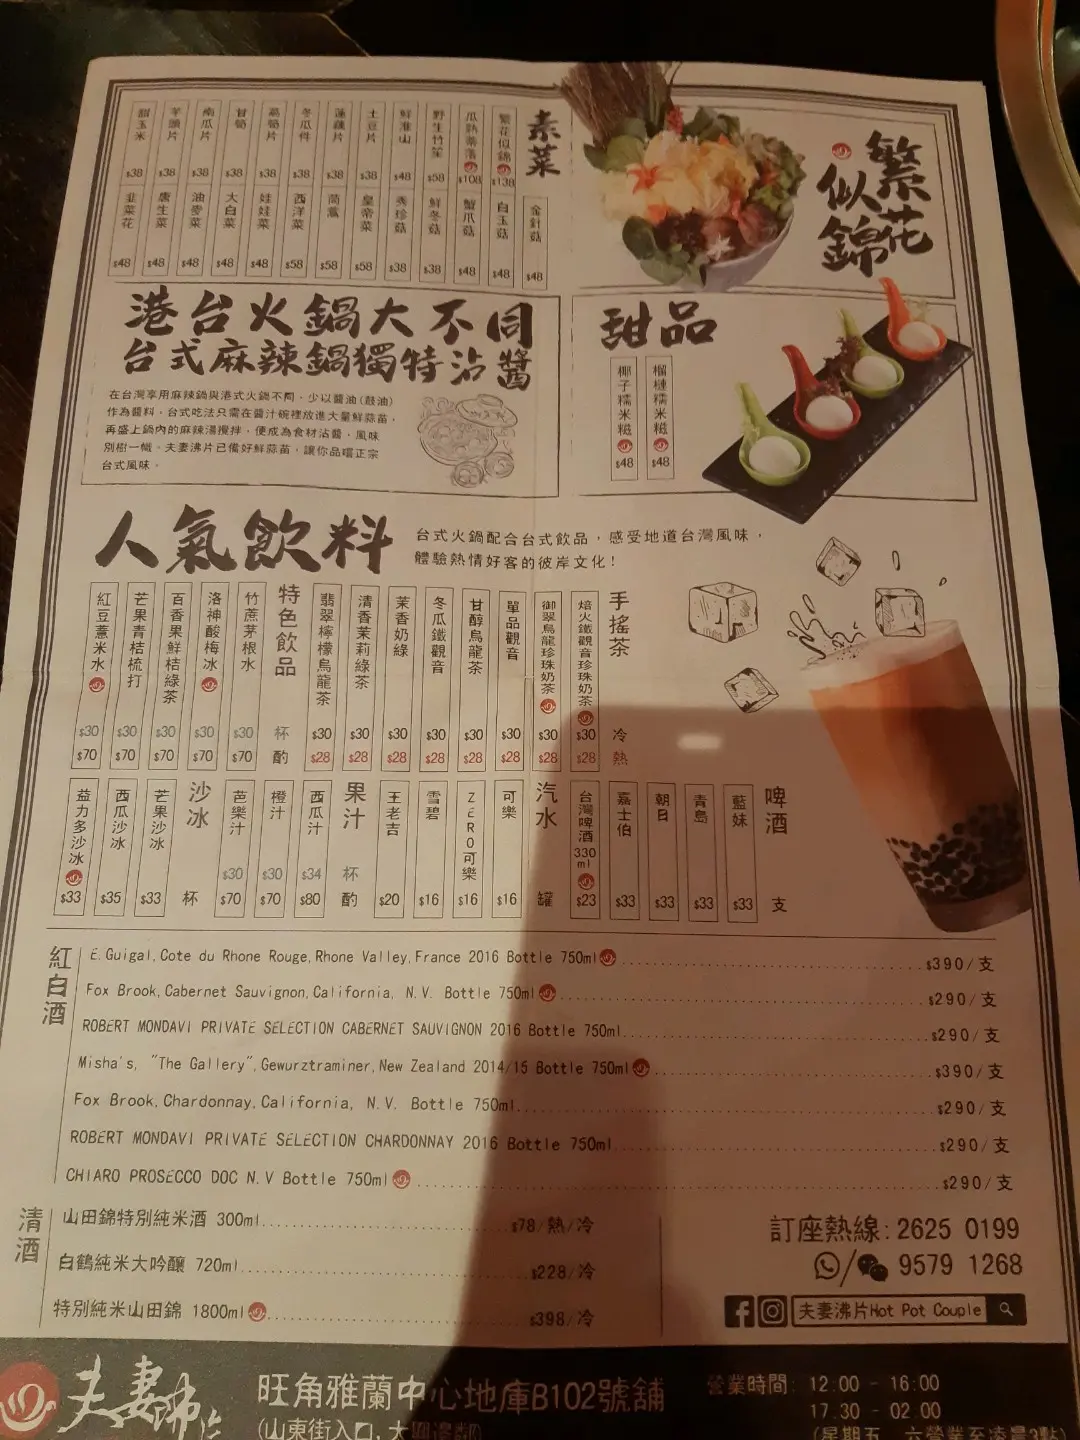 素菜
繁花似錦 $138
瓜熟蒂落 $108
野生竹笙 $58
鮮淮山 $48
土豆片 $38
蓮藕片 $38
冬瓜件 $38
萵筍片 $38
甘筍 $38
南瓜片 $38
芋頭片 $38
甜玉米 $38
金針菇 $48
白玉菇 $48
蟹爪菇 $48
鮮冬菇 $38
秀珍菇 $38
皇帝菜 $58
茼蒿 $58
西洋菜 $58
娃娃菜 $48
大白菜 $48
油麥菜 $48
唐生菜 $48
韭菜花 $48
繁花
似錦
港台火鍋大不同
台式麻辣鍋獨特沾醬
在台灣享用麻辣鍋與港式火鍋不同，少以醬油(豉油)
作為醬料，台式吃法只需在醬汁碗裡放進大量鮮蒜苗，
再盛上鍋內的麻辣湯攪拌，便成為食材沾醬，風味
別樹一幟。夫妻沸片已備好鮮蒜苗，讓你品嚐正宗
台式風味。
甜品
榴槤糯米糍 $48
椰子糯米糍 $48
人氣飲料
台式火鍋配合台式飲品，感受地道台灣風味，
體驗熱情好客的彼岸文化！
手搖茶 冷 熱
焙火鐵觀音珍珠奶茶 $30 $28
御翠烏龍珍珠奶茶 $30 $28
單品觀音 $30 $28
甘醇烏龍茶 $30 $28
冬瓜鐵觀音 $30 $28
茉香奶綠 $30 $28
清香茉莉綠茶 $30 $28
翡翠檸檬烏龍茶 $30 $28
特色飲品 杯 酌
竹蔗茅根水 $30 $70
洛神酸梅冰 $30 $70
百香果鮮桔綠茶 $30 $70
芒果青桔梳打 $30 $70
紅豆薏米水 $30 $70
啤酒 支
藍妹 $33
青島 $33
朝日 $33
嘉士伯 $33
台灣啤酒 330ml $23
汽水 罐
可樂 $16
ZERO可樂 $16
雪碧 $16
王老吉 $20
果汁 杯 酌
西瓜汁 $34 $80
橙汁 $30 $70
芭樂汁 $30 $70
沙冰 杯
芒果沙冰 $33
西瓜沙冰 $35
益力多沙冰 $33
紅白酒
E.Guigal,Cote du Rhone Rouge,Rhone Valley,France 2016 Bottle 750ml $390/支
Fox Brook,Cabernet Sauvignon,California, N.V. Bottle 750ml $290/支
ROBERT MONDAVI PRIVATE SELECTION CABERNET SAUVIGNON 2016 Bottle 750ml $290/支
Misha's, "The Gallery",Gewurztraminer,New Zealand 2014/15 Bottle 750ml $390/支
Fox Brook,Chardonnay,California, N.V. Bottle 750ml $290/支
ROBERT MONDAVI PRIVATE SELECTION CHARDONNAY 2016 Bottle 750ml $290/支
CHIARO PROSECCO DOC N.V Bottle 750ml $290/支
清酒
山田錦特別純米酒 300ml $78/熱/冷
白鶴純米大吟釀 720ml $228/冷
特別純米山田錦 1800ml $398/冷
訂座熱線: 2625 0199
9579 1268
夫妻沸片Hot Pot Couple
夫妻沸片
旺角雅蘭中心地庫B102號舖
(山東街入口, 大
營業時間: 12:00 - 16:00
17.30 - 02.00
(星期五、六營業至凌晨3點)